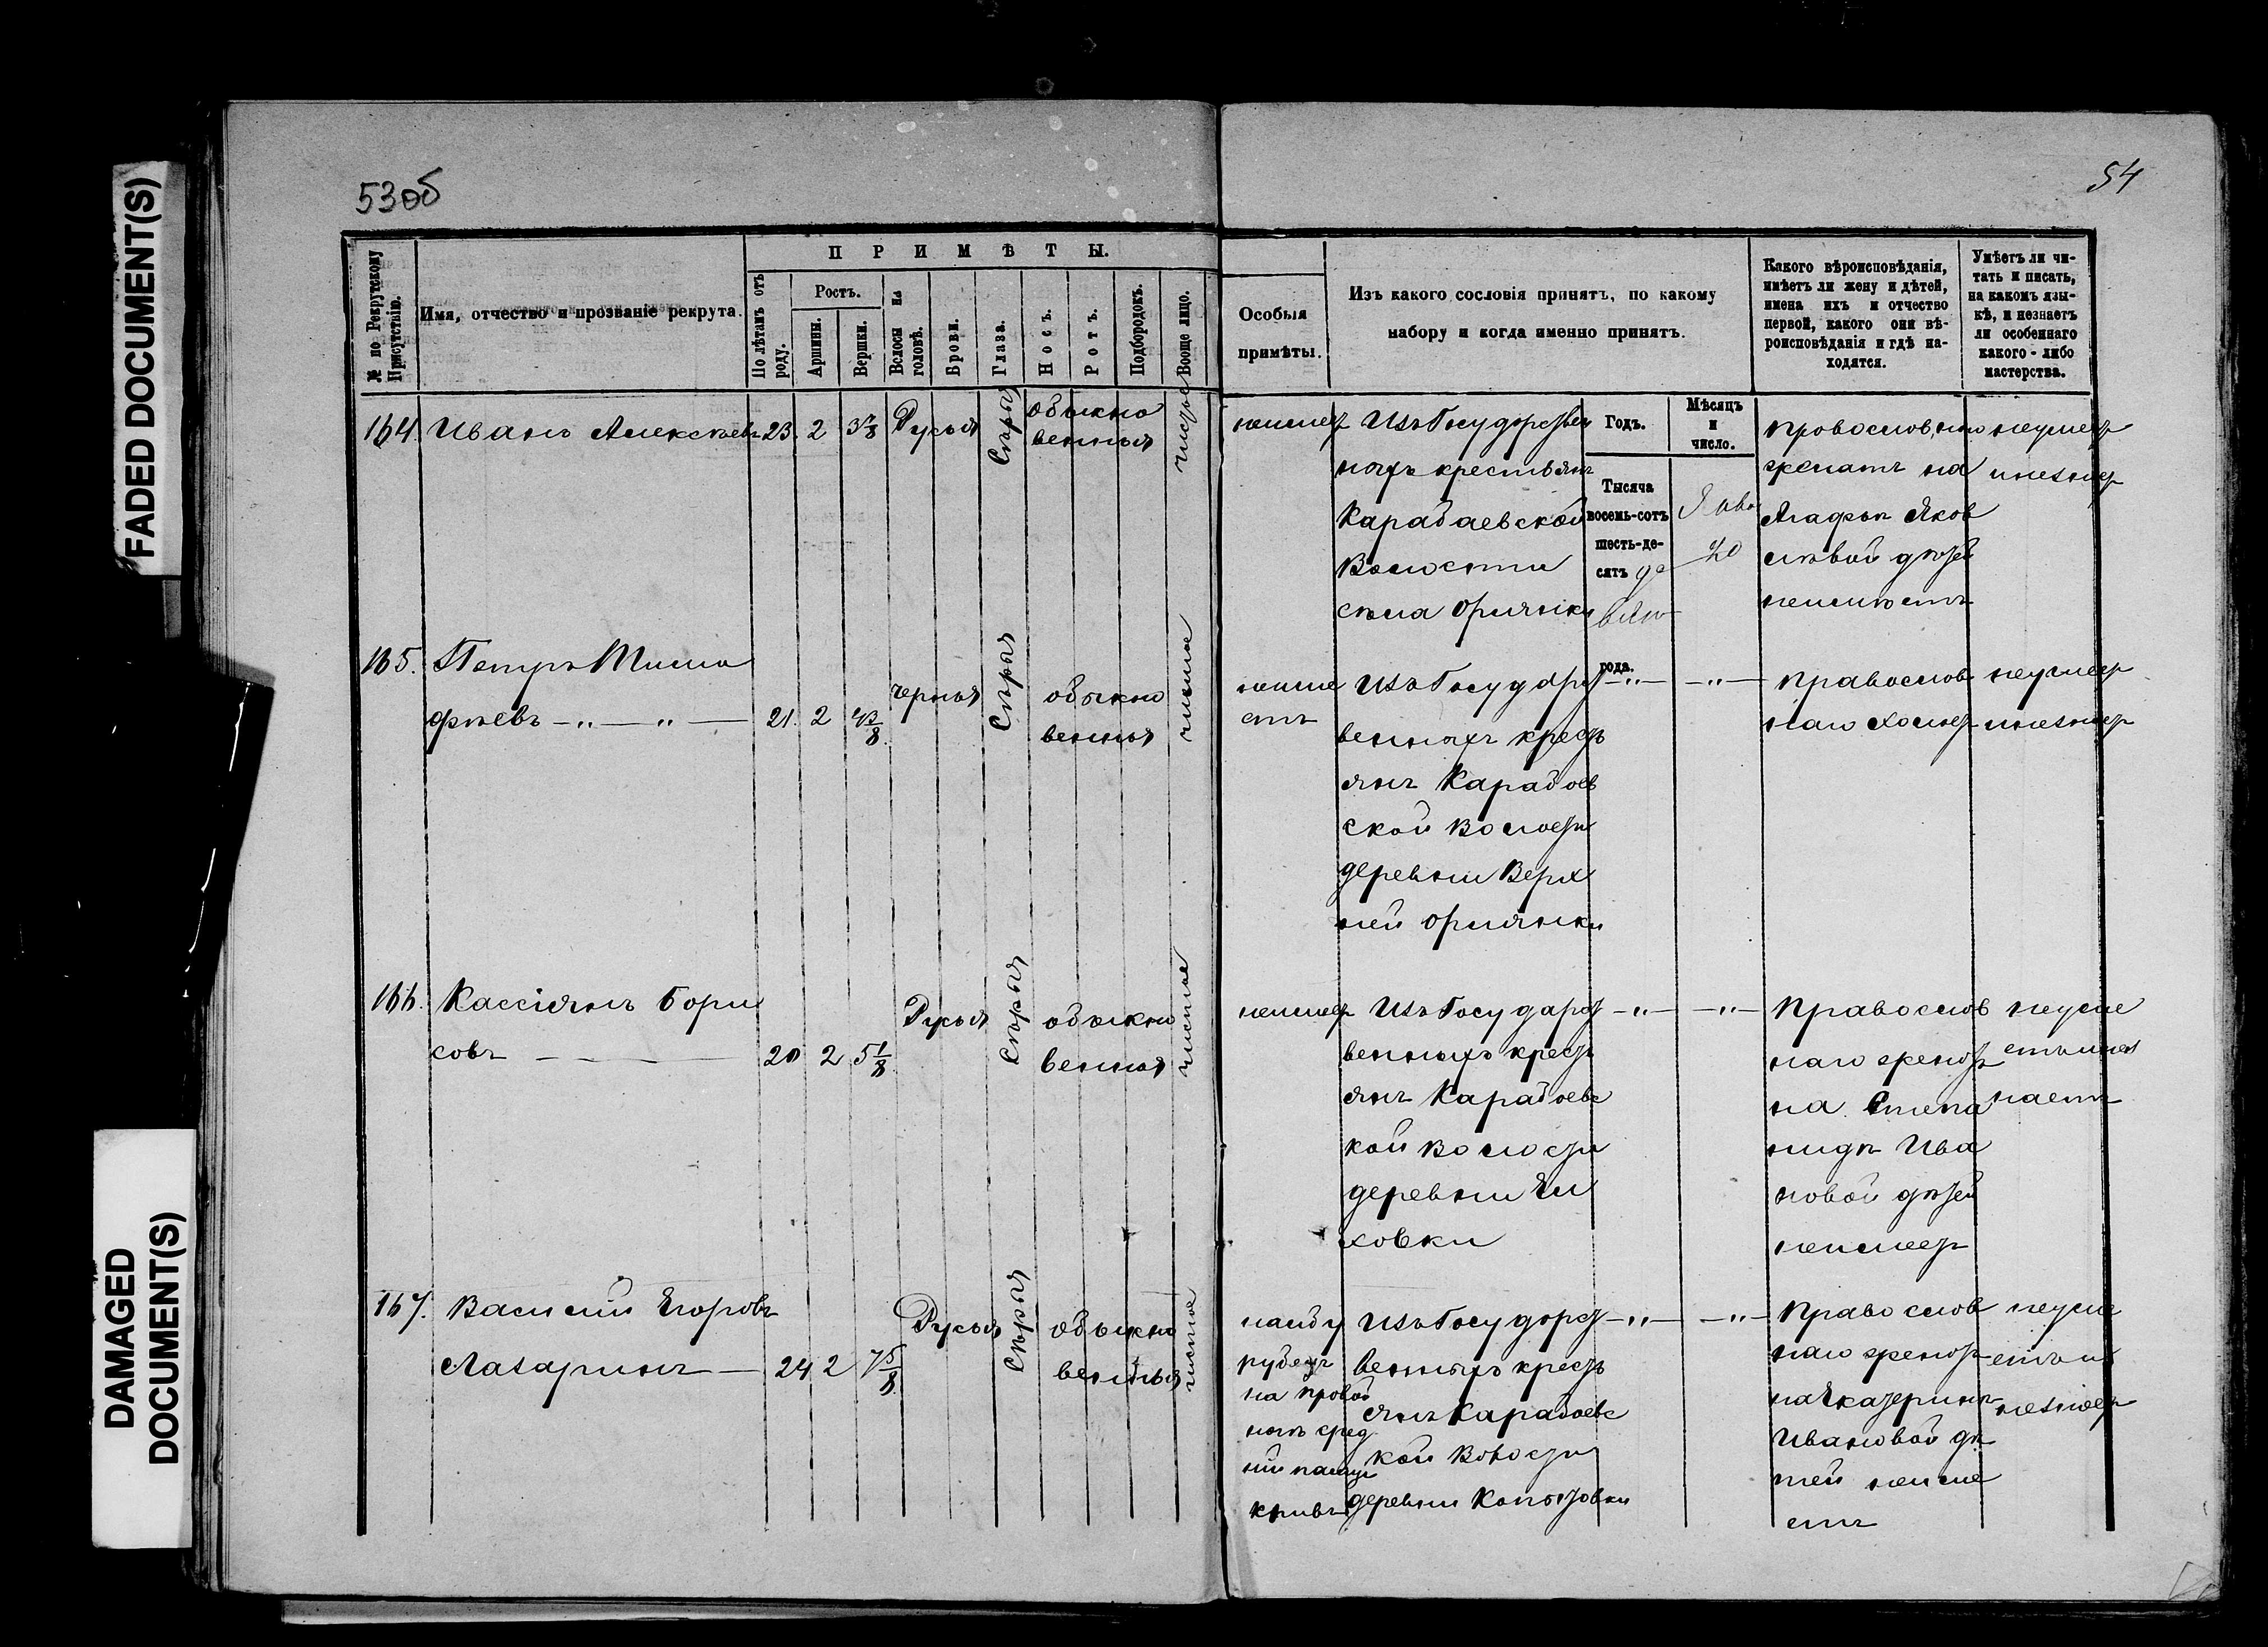 FADED DOCUMENT(S)
DAMAGED
DOCUMENT(S)
53об
54
№ по Рекрутскому
Присутствію.
Имя, отчество и прозваніе рекрута.
ПРИМѢТЫ.
По лѣтамъ отъ
роду.
Ростъ.
Аршины.
Вершки.
Волосы на
головѣ.
Брови.
Глаза.
Носъ.
Ротъ.
Подбородокъ.
Вооще лицо.
Особыя
примѣты.
Изъ какого сословія принятъ, по какому
набору и когда именно принятъ.
Какого вѣроисповѣданія,
имѣетъ ли жену и дѣтей,
имена ихъ и отчество
первой, какого они вѣ-
роисповѣданія и гдѣ на-
ходятся.
Умѣетъ ли чи-
тать и писать,
на какомъ язы-
кѣ, и незнаетъ
ли особеннаго
какого-либо
мастерства.
Годъ.
Мѣсяцъ
и
число.
Тысяча
восемь-сотъ
шесть-де-
сятъ де
вято
года.
Янва
20
164. Иванъ Алексѣевъ 23. 2 3 7/8 Русыя Сѣрыя обыкно
венныя чистое
неимеет
Изъ Государствен
ныхъ крестьянъ
Карабаевской
Волости
села Орлянки
православнаго
женатъ на
Агафьѣ Яков
лѣвой дѣтей
неимѣетъ
неумеет
инезнает
165. Петръ Тимо
фѣевъ —„—„— 21. 2 4 3/8 черныя Сѣрыя обыкно
венныя чистое
неиме
етъ
Изъ Государст
венныхъ кресть
янъ Карабаев
ской Волости
деревни Верх
ней Орлянки
—„— —„—
православ
наго холост
неумеет
инезнает
166. Кассіянъ Бори
совъ — — — 20 2 5 1/8 Русыя Сѣрыя обыкно
венныя чистое
неимеет
Изъ Государст
венныхъ кресть
янъ Карабаевс
кой Волости
деревни Ел
ховки
—„— —„—
Православ
наго женат
на Степа
нидѣ Ива
новой дѣтей
неимеет
неуме
етъ инез
наетъ
167. Василий Егоровъ
Лазаринъ — 24 2 7 5/8 Русыя Сѣрыя обыкно
венныя чистое
на
рубецъ
на правой
сред
ний палец
кривъ
Изъ Государст
венныхъ кресть
янъ Карабаевс
кой Волости
деревни Копытовки
—„— —„—
Православ
наго женат
на Екатеринѣ
Ивановой дѣ
тей неиме
етъ
неуме
етъ и
незнает